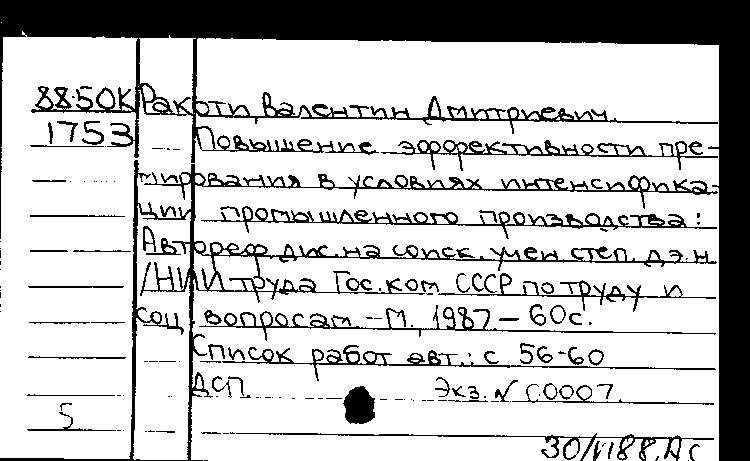 88-50К Ракоти, Валентин Дмитриевич.
1753 Повышение эффективности пре-
мирования в условиях интенсифика-
ции промышленного производства:
Автореф. дис. на соиск. учен. степ. д.э.н.
/НИИ труда Гос. ком СССР по труду и
соц. вопросам. - М., 1987 - 60с.
Список работ авт.: с 56-60
ДСП. Экз. N С0007.
5